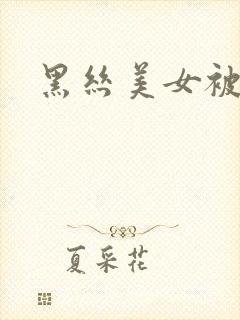 黑丝美女被
夏采花